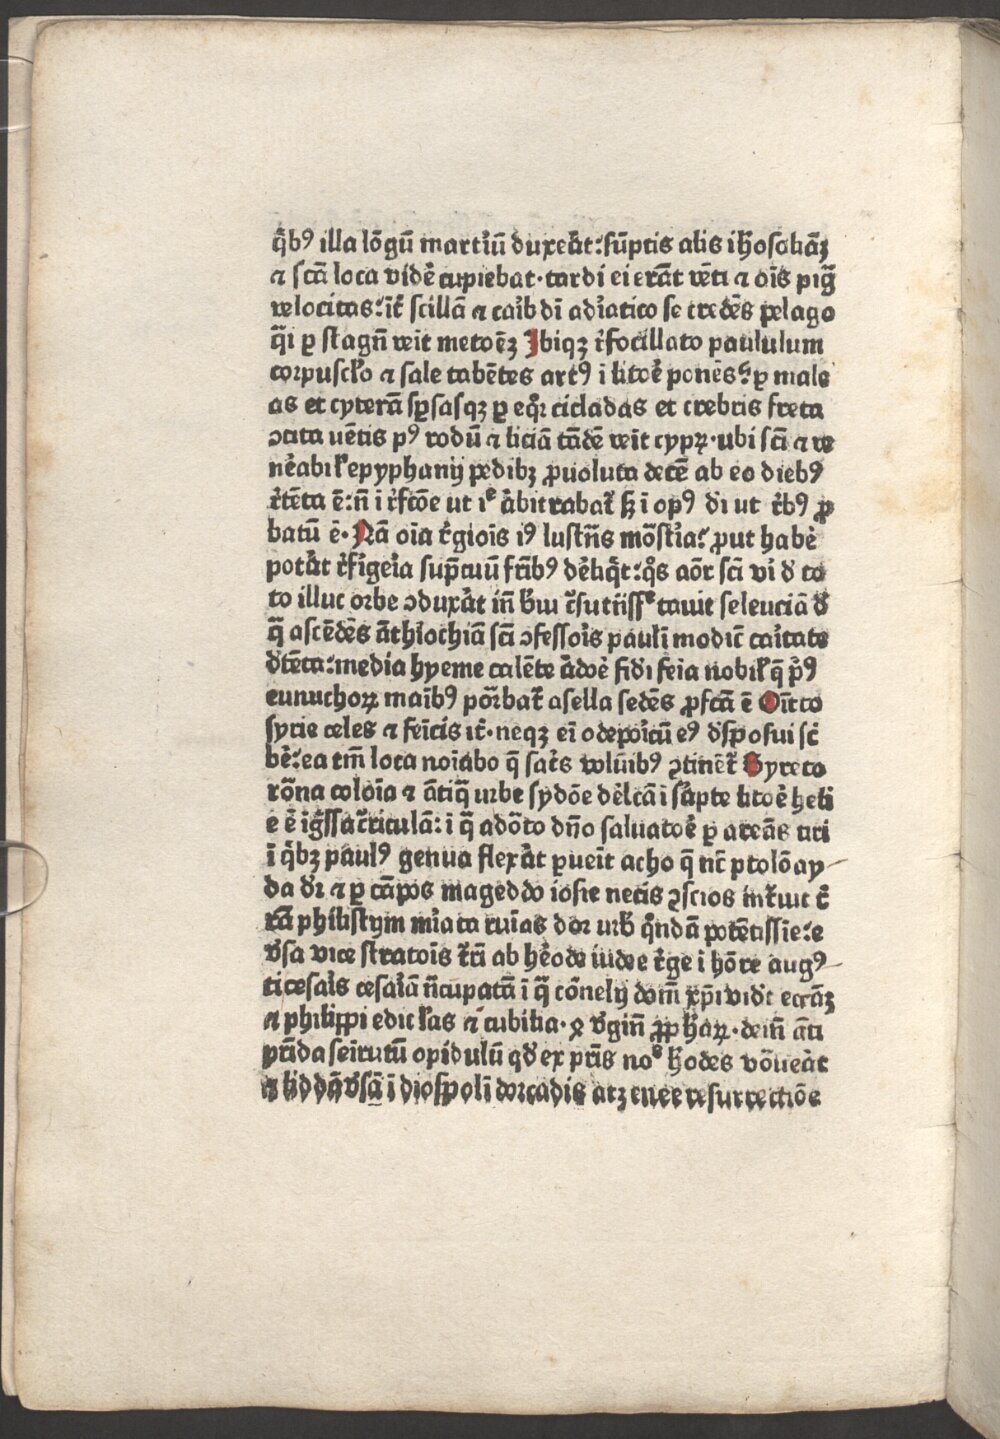 q̊bꝰ illa lōgū martīū duxeāt: sūptis alis ihosolīaꝫ
⁊ scā loca vidē cupiebat· tardi ei erāt vēti ⁊ oīs pigᷓ
velocitas: īt scillā ⁊ caīb dī adīatico se credēs pelago
qᷓi ꝑ stagn̄ veit metoēꝫ Ibiqꝫ r̄focillato paululum
corpusclo ⁊ sale tabētes artꝰ i litoē ponēs: ꝑ male
as et cyterā sp̄sasqꝫ ꝑ eqͥ cicladas et crebris freta
ↄcita uētis pꝰ rodū ⁊ liciā tādē veit cypꝝ· ubi scī ⁊ ve
nēabil epyphanij pedibꝫ ꝓuoluta decē ab eo diebꝰ
r̄tēta ē: n̄ i r̄fcōe ut iᵉ ābitrabat sꝫ i opꝰ di ut r̄bꝰ ꝓ
batū ē· Nā oīa r̄giois iꝰ lustn̄s mōstīa: ꝓut habē
potāt r̄fīgeīa sup̄tuū frībꝰ dēliq̄t: qͦs aōr scī vī ð to
to illuc orbe ↄduxāt
q̄ ascēdēs āthīochiā scī ↄfessoīs pauli modic̄ caītate
ðtēta: media hyeme calēte ādoē fidi feīa nobil q̄ pͥꝰ
eunuchoꝝ maībꝰ pōrbat asella sedēs ꝓfcā ē Oīto
syrie celes ⁊ feīcis īt· neqꝫ eī odepoīcū eꝰ
bē: ea tm̄ loca noīabo q̄ satīs volūībꝰ ↄtinēt Byreto
rōna coloīa ⁊ ātiq̄ urbe sydōe dēlcā i sāpte litoē heli
e ē igᷓssa t̄riculā: i q̄ adōto dn̄o saluatoē ꝑ areās tiri
ī q̊bꝫ paulꝰ genua flexāt ꝑueīt acho q̄ nc̄ ptolōay
da ðr ⁊ ꝑ cāpos mageddo iosie necis ↄscios intuit t̄
rā philistym mīata ruīas dor urb̄ qͦndā potētissie: e
v̄sa vice stratoīs t̄ri ab hēode iudee r̄ge i hōre augꝰ
ti cesaīs cesaīā n̄cupatā ī q̄ cōnelij dom̄ xp̄i vidt ecc̄aꝫ
⁊ philippi ediclas ⁊ cubilia· ꝙ v̄gin̄ ꝓpharꝝ· dein̄ āti
prīda seirutū opidulū qð ex prīs noᵉ hodes vōueāt
⁊ lid dā v̄sā ī diospoli dorcadis atꝫ enee resurrectiōe